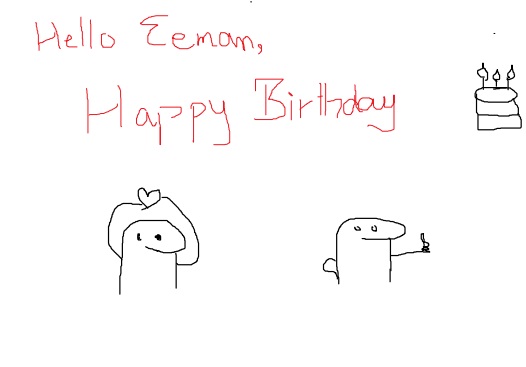 Hello Eeman,
Happy Birthday